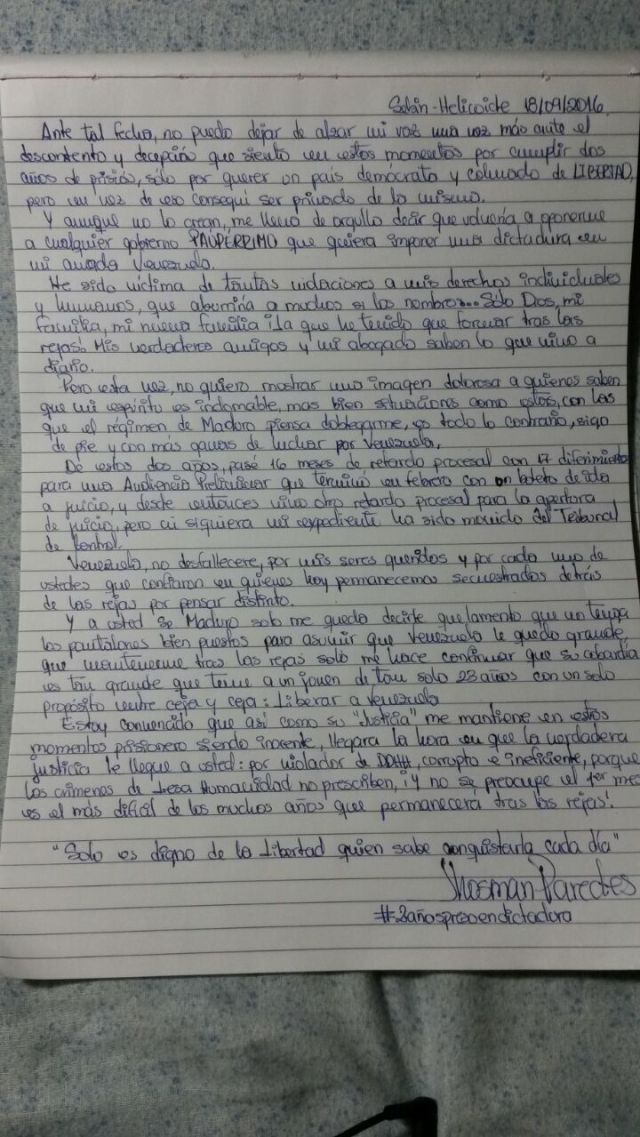 Sebin-Helicoide 18/09/2016.
Ante tal fecha, no puedo dejar de alzar mi voz una vez más ante el
descontento y decepción que siento en estos momentos por cumplir dos
años de prisión, sólo por querer un país democrata y colmado de LIBERTAD,
pero en vez de eso consegui ser privado de la misma.
Y aunque no lo crean, me llena de orgullo decir que volveria a oponerme
a cualquier gobierno PAUPERRIMO que quiera imponer una dictadura en
mi amada Venezuela.
He sido victima de tantas violaciones a mis derechos individuales
y humanos, que aburriria a muchos si los nombro... Sólo Dios, mi
familia, mi nueva familia ¡la que he tenido que formar tras las
rejas! Mis verdaderos amigos y mi abogado saben lo que vivo a
diario.
Pero esta vez, no quiero mostrar una imagen dolorosa a quienes saben
que mi espiritu es indomable, mas bien situaciones como estas, con las
que el régimen de Maduro piensa doblegarme, es todo lo contrario, sigo
de pie y con más ganas de luchar por Venezuela.
De estos dos años, pasé 16 meses de retardo procesal con 17 diferimientos
para una Audiencia Preliminar que termino en febrero con un boleto de ida
a juicio, y desde entonces vivo otro retardo procesal para la apertura
de juicio, pero ni siquiera mi expediente ha sido movido del Tribunal
de Control.
Venezuela, no desfallecere, por mis seres queridos y por cada uno de
ustedes que confiaron en quienes hoy permanecemos secuestrados detrás
de las rejas por pensar distinto.
Y a usted Sr Maduro solo me queda decirle que lamento que no tenga
los pantalones bien puestos para asumir que Venezuela le quedo grande,
que mantenerme tras las rejas solo me hace confirmar que su cobardia
es tan grande que teme a un joven de tan solo 23 años con un solo
propósito entre ceja y ceja: Liberar a Venezuela
Estoy convencido que asi como su "Justicia" me mantiene en estos
momentos prisionero siendo inocente, llegara la hora en que la verdadera
justicia le llegue a usted: por violador de DDHH, corrupto e ineficiente, porque
los crimenes de Lesa Humanidad no prescriben, ¡Y no se preocupe el 1er mes
es el más dificil de los muchos años que permanecera tras las rejas!
"Solo es digno de la libertad quien sabe conquistarla cada día"
Shosman Paredes
#2añospresoendictadura